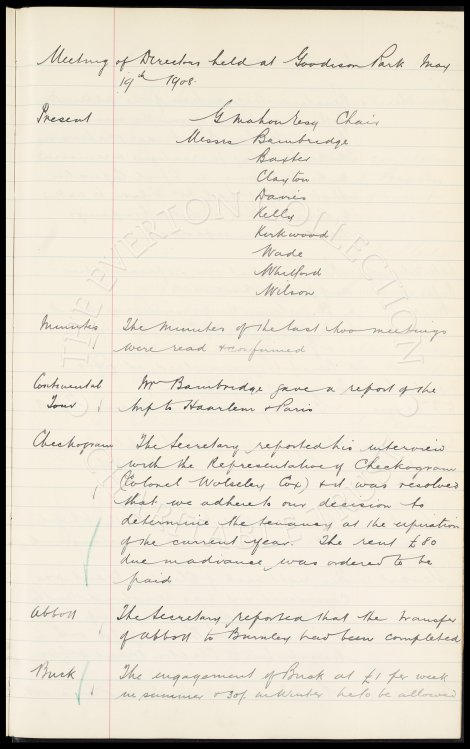 Meeting of Directors held at Goodison Park May
19th 1908.
Present G Mahon Esq Chair
Messrs Bainbridge
Baxter
Clayton
Davies
Kelly
Kirkwood
Wade
Whitford
Wilson
Minutes The Minutes of the last two meetings
were read & confirmed
Continental Mr Bainbridge gave a report of the
Tour trip to Haarlem & Paris
Checkogram The Secretary reported his interview
with the Representative of Checkogram
(Colonel Wolseley Cox) & it was resolved
that we adhere to our decision to
determine the tenancy at the expiration
of the current year. The rent £80
due in advance was ordered to be
paid
Abbott The Secretary reported that the transfer
of Abbott to Burnley had been completed
Buck The engagement of Buck at £1 per week
in summer & 30/- in Winter he to be allowed
THE EVERTON COLLECTION